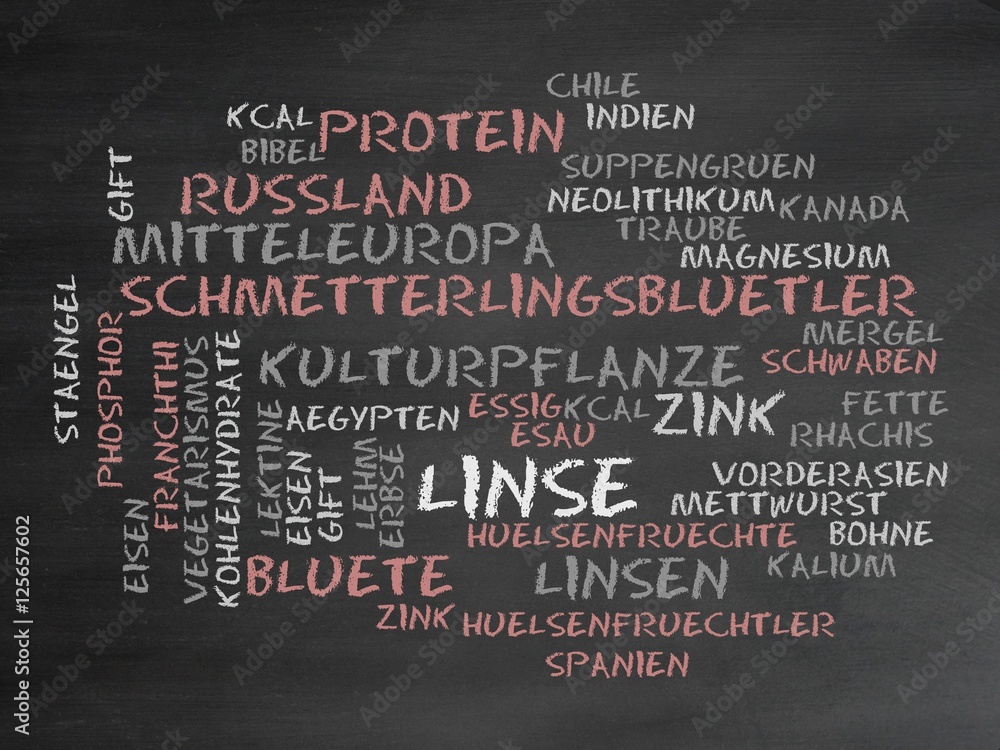 CHILE
KCAL
PROTEIN
INDIEN
BIBEL
SUPPENGRUEN
GIFT
RUSSLAND
NEOLITHIKUM
KANADA
TRAUBE
MITTELEUROPA
MAGNESIUM
SCHMETTERLINGSBLUETLER
MERGEL
STAENGEL
PHOSPHOR
FRANCHTHI
VEGETARISMUS
KOHLENHYDRATE
KULTURPFLANZE
SCHWABEN
AEGYPTEN
ESSIG
KCAL
ZINK
FETTE
ESAU
RHACHIS
LEKTINE
EISEN
GIFT
LEHM
ERBSE
LINSE
VORDERASIEN
METTWURST
EISEN
HUELSENFRUECHTE
BOHNE
BLUETE
LINSEN
KALIUM
ZINK
HUELSENFRUECHTLER
SPANIEN
Adobe Stock | #125657602
Adobe Stock